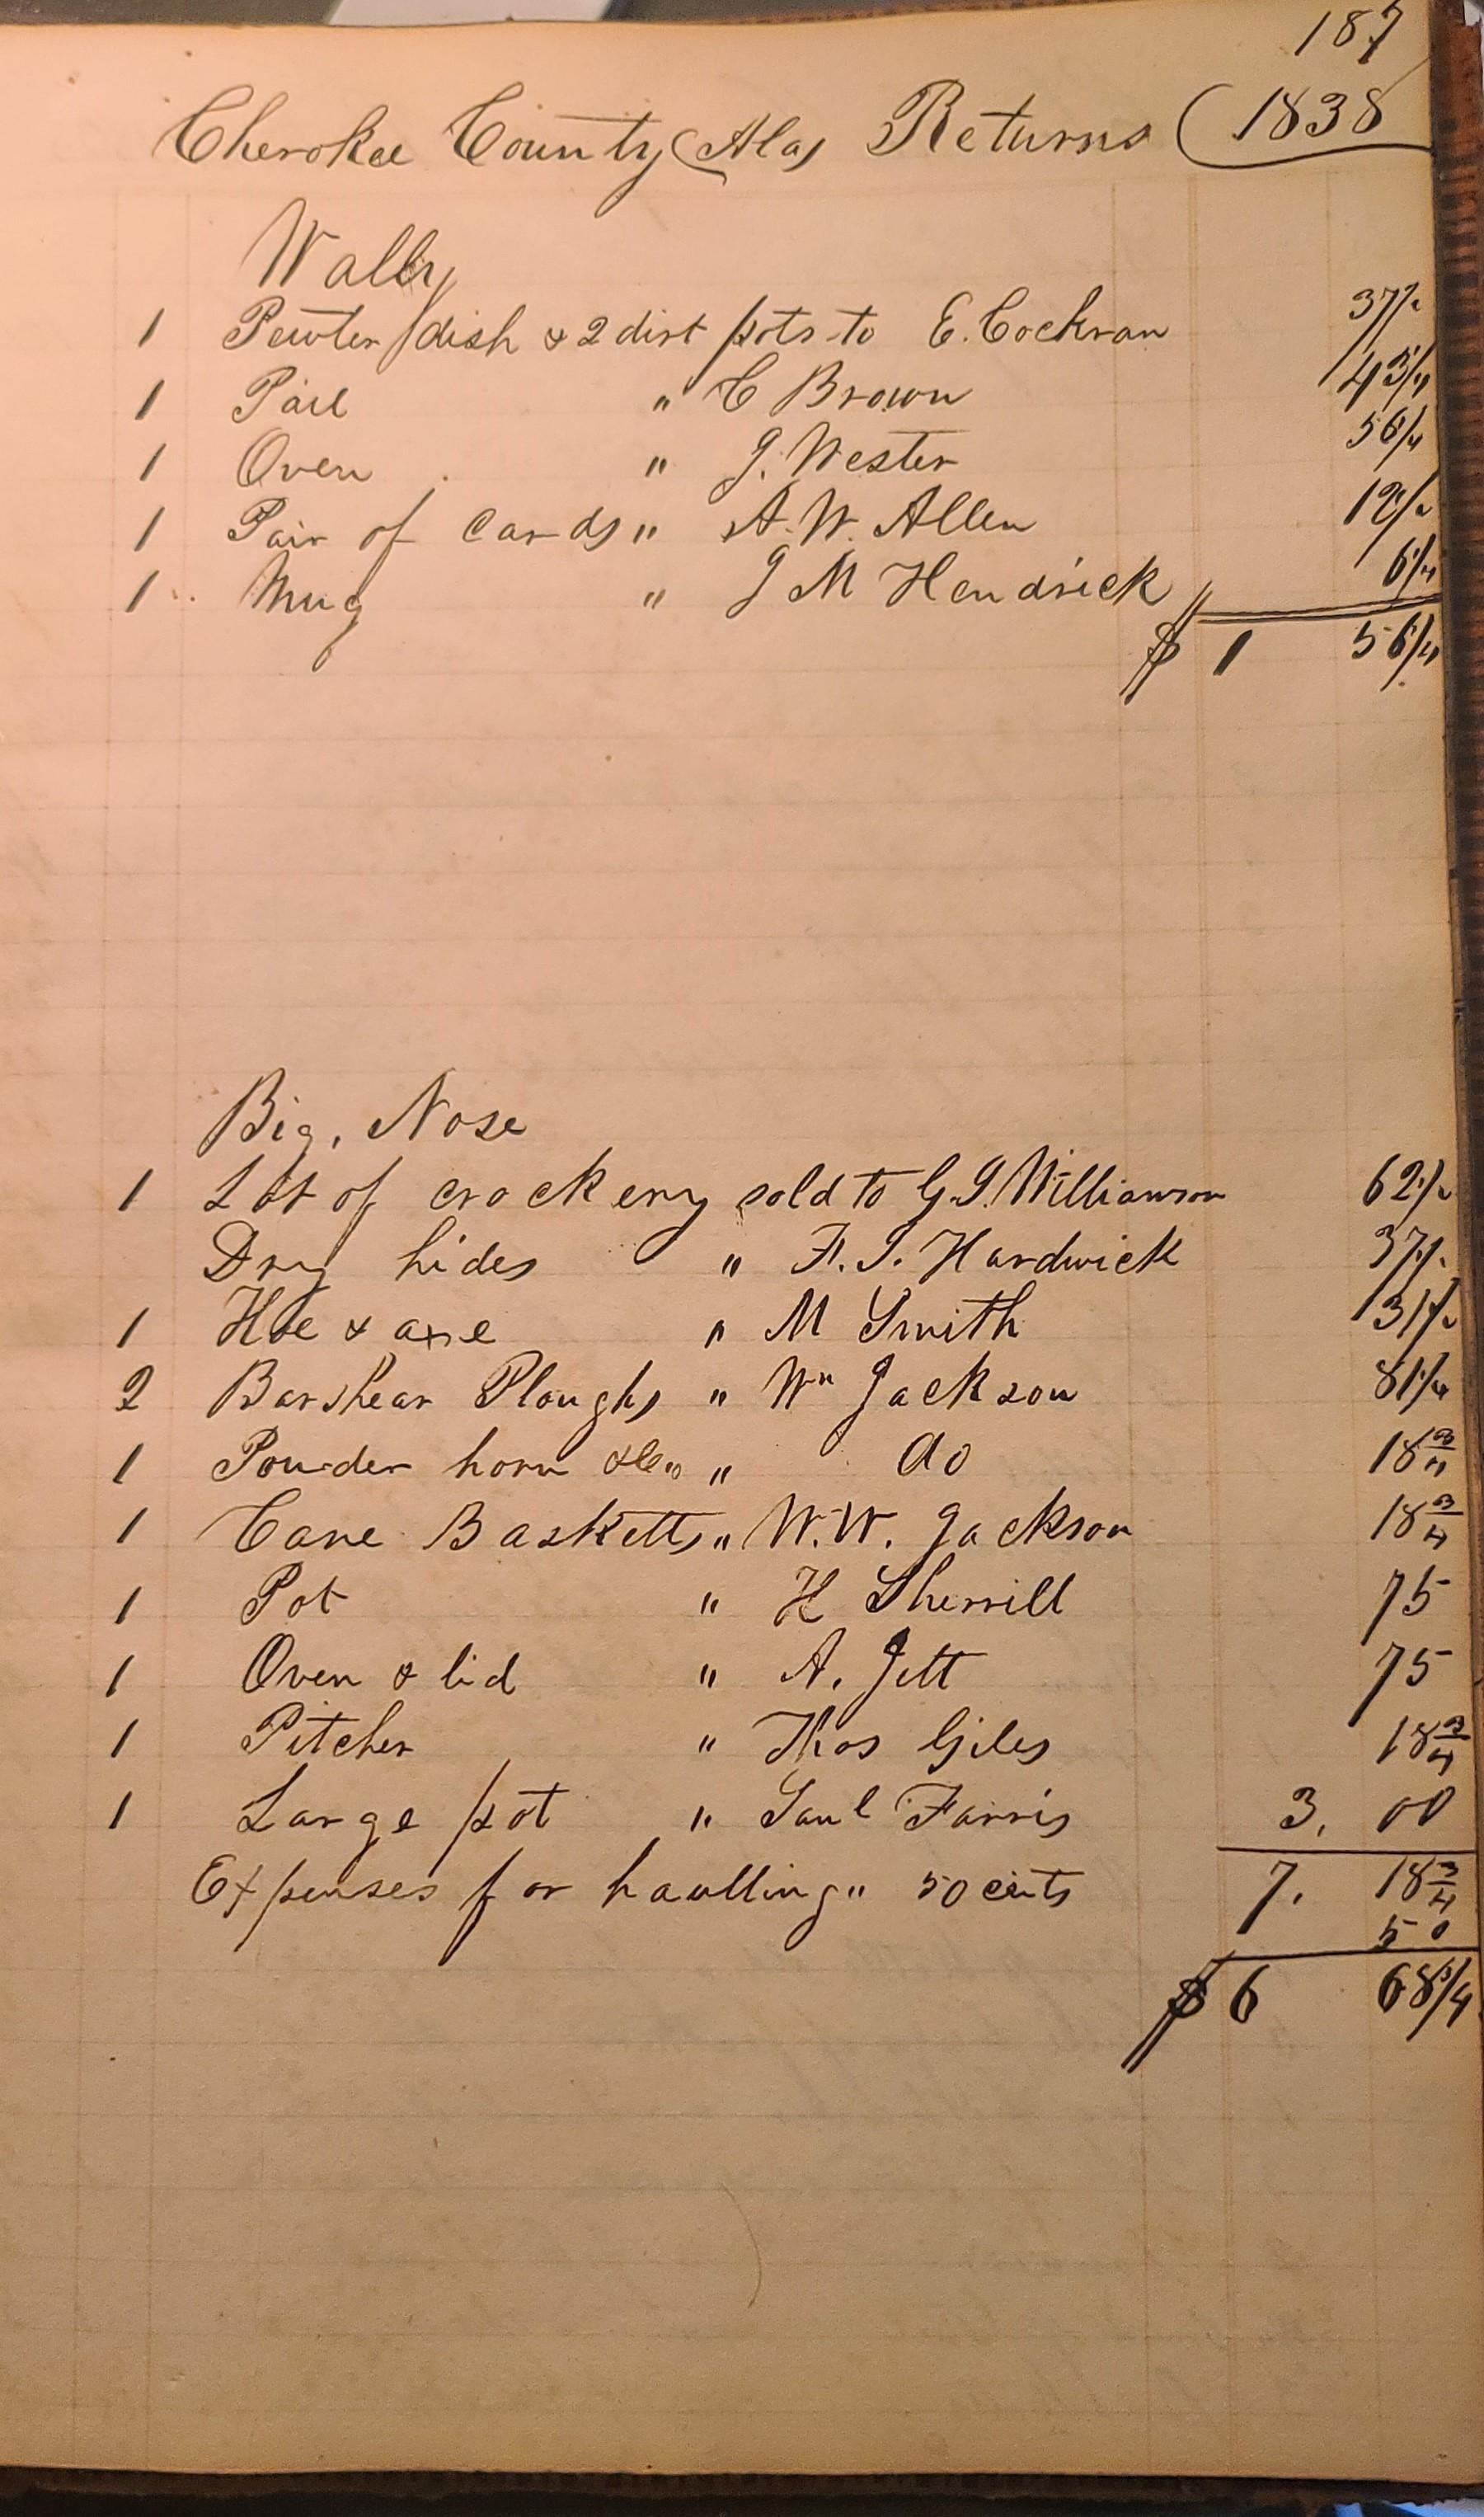 187
Cherokee County (Ala) Returns (1838
Wally
1 Pewter dish & 2 dirt pots to E. Cockran 37 1/2
1 Pail " C Brown 43 3/4
1 Oven " J. Wester 56 1/4
1 Pair of Cards " A. W. Allen 12 1/2
1 Mug " J M Hendrick 6 1/4
$ 1 56 1/4
Big, Nose
1 Lot of crockery sold to G. J. Williamson 62 1/2
Dry hides " F. J. Hardwick 37 1/2
1 Hoe & axe " M Smith 31 1/4
2 Barshear Ploughs " Wm Jackson 81 1/4
1 Powder horn &c " do 18 3/4
1 Cane Basketts " W. W. Jackson 18 3/4
1 Pot " H Sherrill 75
1 Oven & lid " A. Jett 75
1 Pitcher " Thos Giles 18 3/4
1 Large pot " Saul Farris 3. 00
Expenses for haulling " 50 cents 7. 18 3/4
50
$ 6 68 3/4